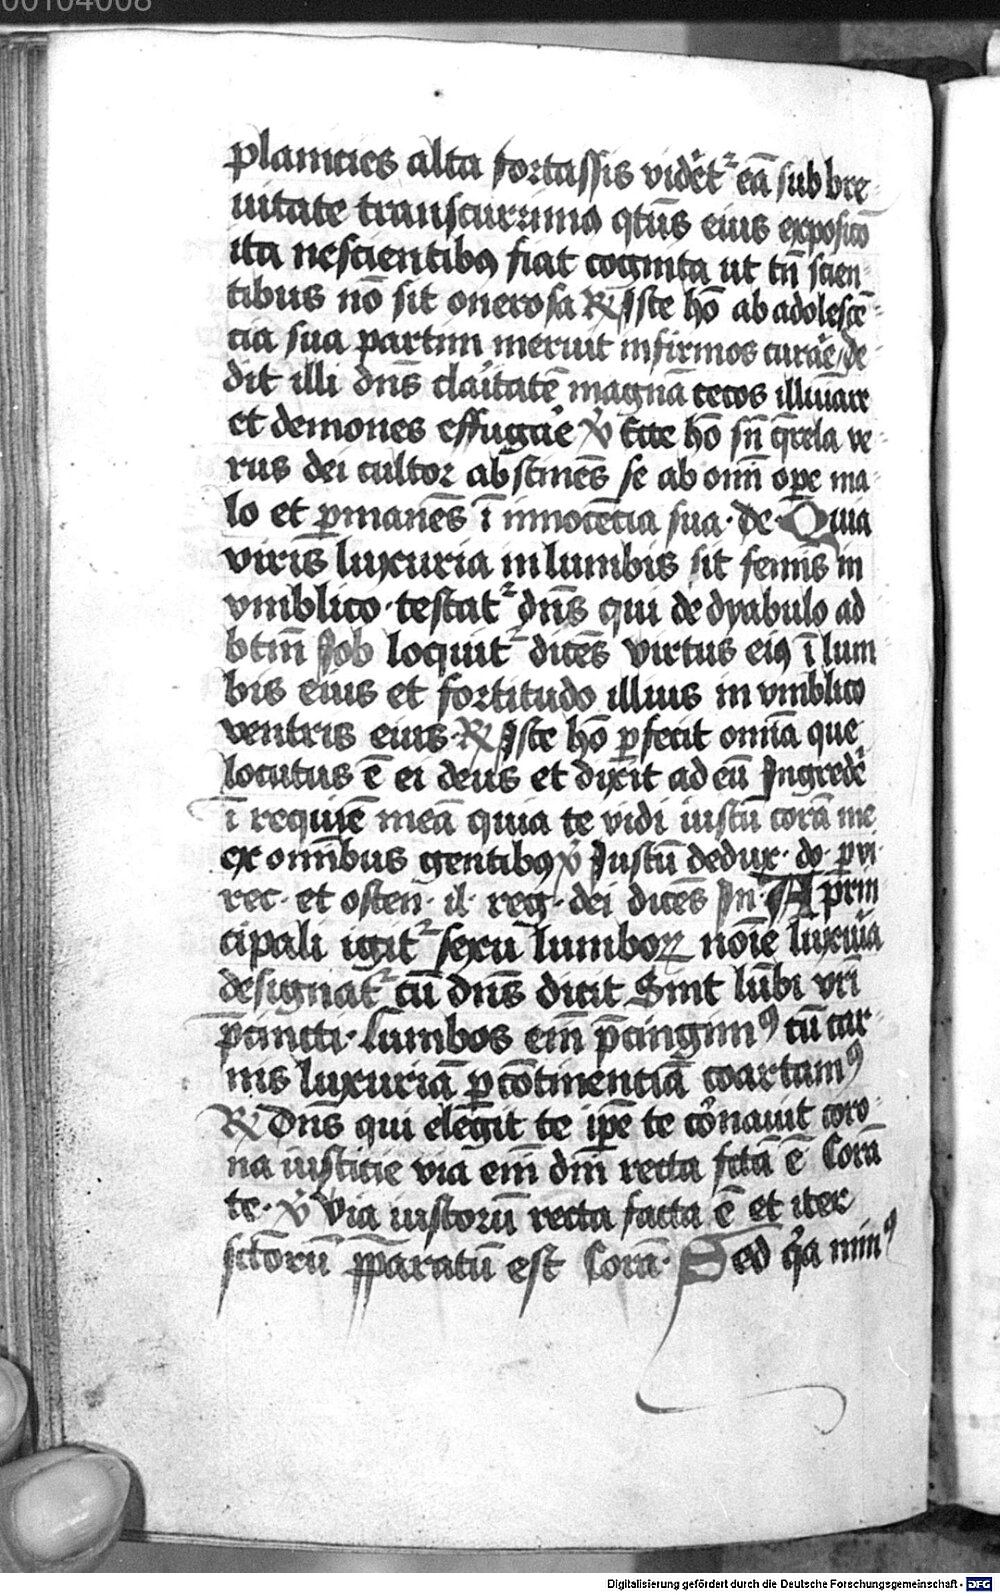 00104008
planicies alta fortassis videt᷑ eā sub bre
uitate transcurrimꝰ qtūs eius exposicō
ita nescientibꝰ fiat cognita ut tn̄ scien
tibus nō sit onerosa ℟ Iste hō ab adolescē
cia sua partim meruit infirmos curaͤ de
dit illi dn̄s claͥtatē magnā cecos illūiare
et demones effugaͤe ℣ Ecce hō sn̄ q̄rela ve
rus dei cultor abstinēs se ab om̄i ope ma
lo et ꝑmanēs ī innocēcia sua · de · Quia
viris luxcuria in lumbis sit femīs in
vmblico · testat᷑ dn̄s qui de dyabulo ad
btm̄ Job loquit᷑ dicēs virtus eiꝰ ī lum
bis eius et fortitudo illius in vmblico
ventris eius · ℟ Iste hō ꝑfecit om̄ia que
locutus ē ei deus et dixit ad eū Ingredeͤ
ī requiē meā quia te vidi iustū corā me
ex om̄ibus gentibꝰ ℣ Justū dedux · do · ꝑ vi
rec · et osten̄ · il · reg · dei dicēs In · A prin
cipali igit᷑ sexu lumboꝝ noīe luxuͥa
designat᷑ cū dn̄s dicit Sint lūbi vr̄i
p̄cincti · Lumbos em̄ p̄cingimꝰ cū car
nis luxuriā ꝑ cōtinenciā coartamꝰ
℟ Dn̄s qui elegit te ip̄e te coͬnauit coro
na iusticie via em̄ dn̄i recta fctā ē Corā
te · ℣ Via iustorū recta facta ē et iter
sctōrū p̄paratū est Corā · Sed qͥa minꝰ
Digitalisierung gefördert durch die Deutsche Forschungsgemeinschaft - DFG